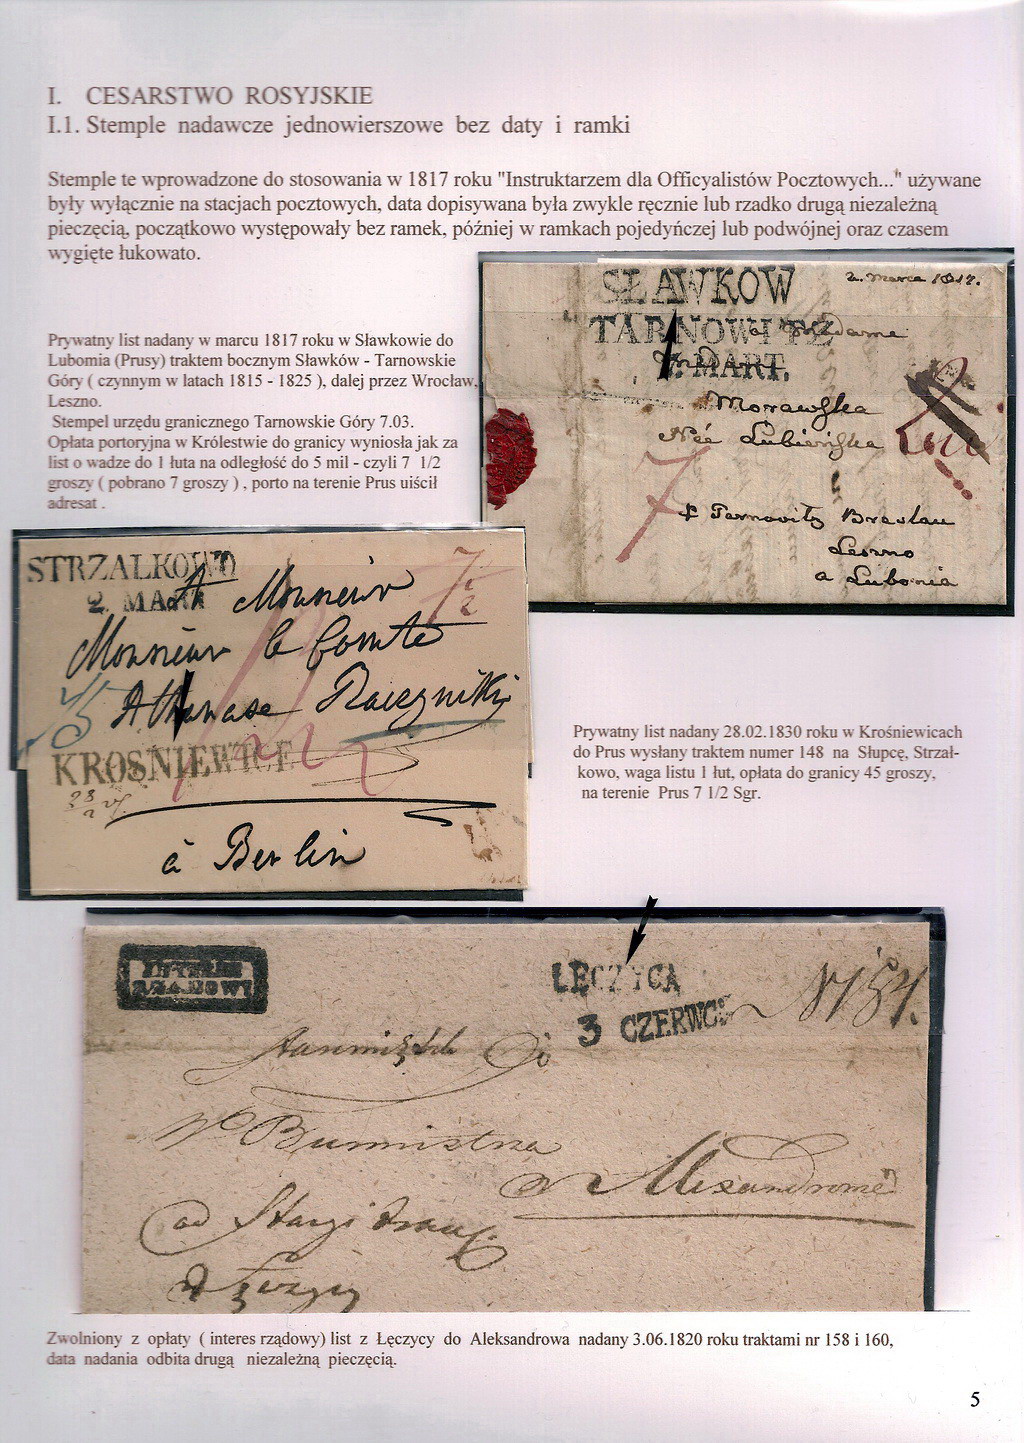 I. CESARSTWO ROSYJSKIE
I.1. Stemple nadawcze jednowierszowe bez daty i ramki
Stemple te wprowadzone do stosowania w 1817 roku "Instruktarzem dla Officyalistów Pocztowych..." używane
były wyłącznie na stacjach pocztowych, data dopisywana była zwykle ręcznie lub rzadko drugą niezależną
pieczęcią, początkowo występowały bez ramek, później w ramkach pojedyńczej lub podwójnej oraz czasem
wygięte łukowato.
Prywatny list nadany w marcu 1817 roku w Sławkowie do
Lubomia (Prusy) traktem bocznym Sławków - Tarnowskie
Góry ( czynnym w latach 1815 - 1825 ), dalej przez Wrocław,
Leszno.
Stempel urzędu granicznego Tarnowskie Góry 7.03.
Opłata portoryjna w Królestwie do granicy wyniosła jak za
list o wadze do 1 łuta na odległość do 5 mil - czyli 7 1/2
groszy ( pobrano 7 groszy ) , porto na terenie Prus uiścił
adresat .
SŁAWKOW
2. Marca 1817.
TARNOWITZ
a Madame
7. MART.
Morawska
Née Lubieńska
7
p Tarnovitz Breslau
Leszno
a Lubonia
STRZALKOWO
2. MART
A Monsieur
7 1/2
Monsieur le Comte
Athanase Raczynski
45
KROSNIEWICE
28/2
à Berlin
Prywatny list nadany 28.02.1830 roku w Krośniewicach
do Prus wysłany traktem numer 148 na Słupcę, Strzał-
kowo, waga listu 1 łut, opłata do granicy 45 groszy,
na terenie Prus 7 1/2 Sgr.
INTERES
RZĄDOWY
ŁĘCZYCA
3 CZERWCA
N 184.
Do
W° Burmistrza
w Alexandrowie
od
w Łęczycy
Zwolniony z opłaty ( interes rządowy) list z Łęczycy do Aleksandrowa nadany 3.06.1820 roku traktami nr 158 i 160,
data nadania odbita drugą niezależną pieczęcią.
5